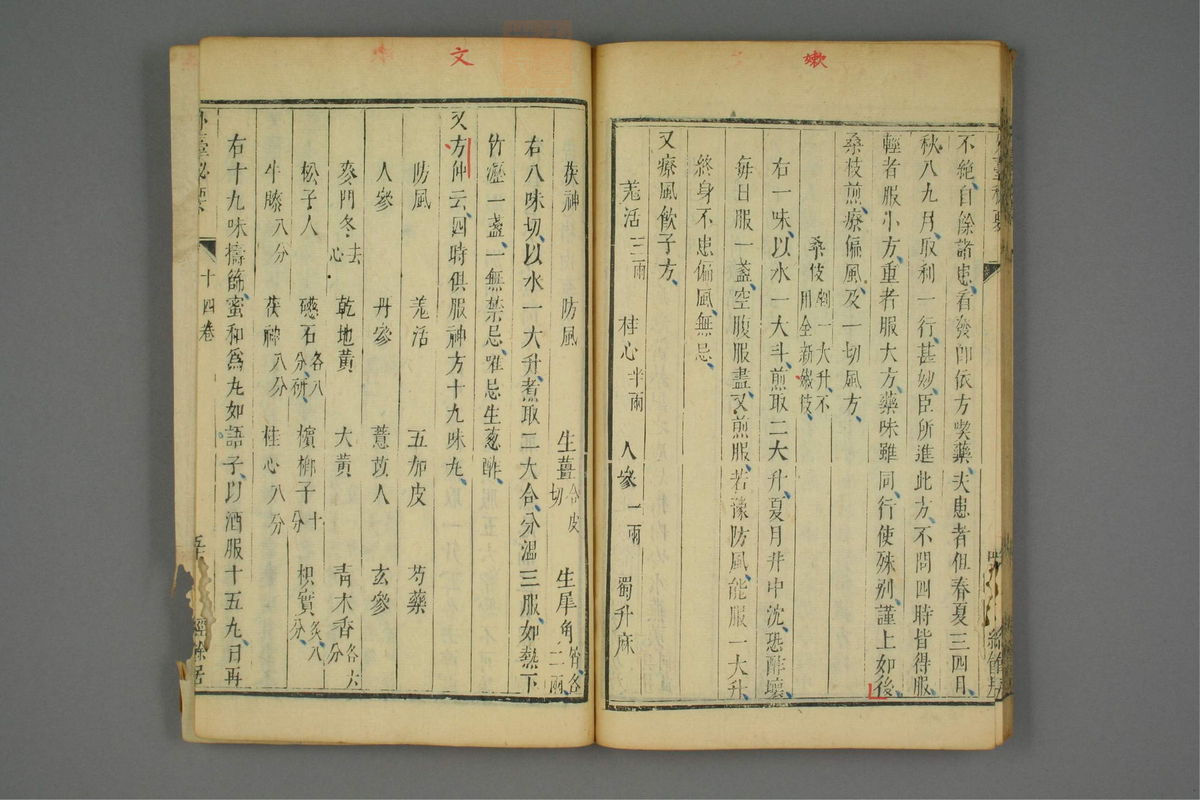 嗽
不絶、自餘諸患、看發卽依方喫藥、夫患者但春夏三四月、
秋八九月、取利一行甚妙、臣所進此方、不問四時皆得服、
輕者服小方、重者服大方、藥味雖同、行使殊別、謹上如後、
桑枝煎、療偏風、及一切風方、
桑枝剉一大升、不
用全新嫩枝、
右一味、以水一大斗、煎取二大升、夏月井中沈、恐酢壞、
每日服一盞、空腹服盡、又煎服、若預防風、能服一大升、
終身不患偏風、無忌、
又療風飲子方、
羗活三兩 桂心半兩 人參一兩 蜀升麻
文
茯神 防風 生薑合皮切 生犀角屑、各二兩、
右八味切、以水一大升、煮取二大合、分溫三服、如熱下
竹瀝一盞、一無禁忌、唯忌生葱酢、
又方仲云、四時俱服神方十九味丸、
防風 羗活 五加皮 芍藥
人參 丹參 薏苡人 玄參
麥門冬去心 乾地黃 大黃 青木香各六分
松子人 磁石各八分、研、 檳榔子十分 枳實炙、八分、
牛膝八分 茯神八分 桂心八分
右十九味擣篩、蜜和爲丸如語子、以酒服十五丸、日再
十四卷
經餘居